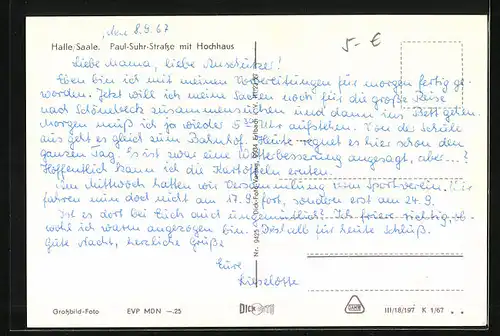 den 8.9.67
5-€
Halle/Saale. Paul-Suhr-Straße mit Hochhaus
Liebe Mama, liebe Anschütze!
Eben bin ich mit meinen Vorbereitungen für morgen fertig ge-
worden. Jetzt will ich meine Sachen noch für die große Reise
nach Schönebeck zusammensuchen und dann ins Bett gehen.
Morgen muß ich ja wieder 5 Uhr aufstehen. Von der Schule
aus geht es gleich zum Bahnhof. Heute regnet es hier schon den
ganzen Tag. Es ist zwar eine Wetterbesserung angesagt, aber...?
Hoffentlich kann ich die Kartoffeln ernten.
Am Mittwoch hatten wir Versammlung vom Sportverein. Wir
fahren nun doch nicht am 17.9. fort, sondern erst am 24.9.
Ist es dort bei Euch auch ungemütlich? Ich friere richtig, ob-
wohl ich warm angezogen bin. Deshalb für heute Schluß.
Gute Nacht, herzliche Grüße
Eure
Lieselotte
Nr. 9425 Dick-Foto-Verlag, Erlbach
Großbild-Foto EVP MDN —.25 DICK III/18/197 K 1/67